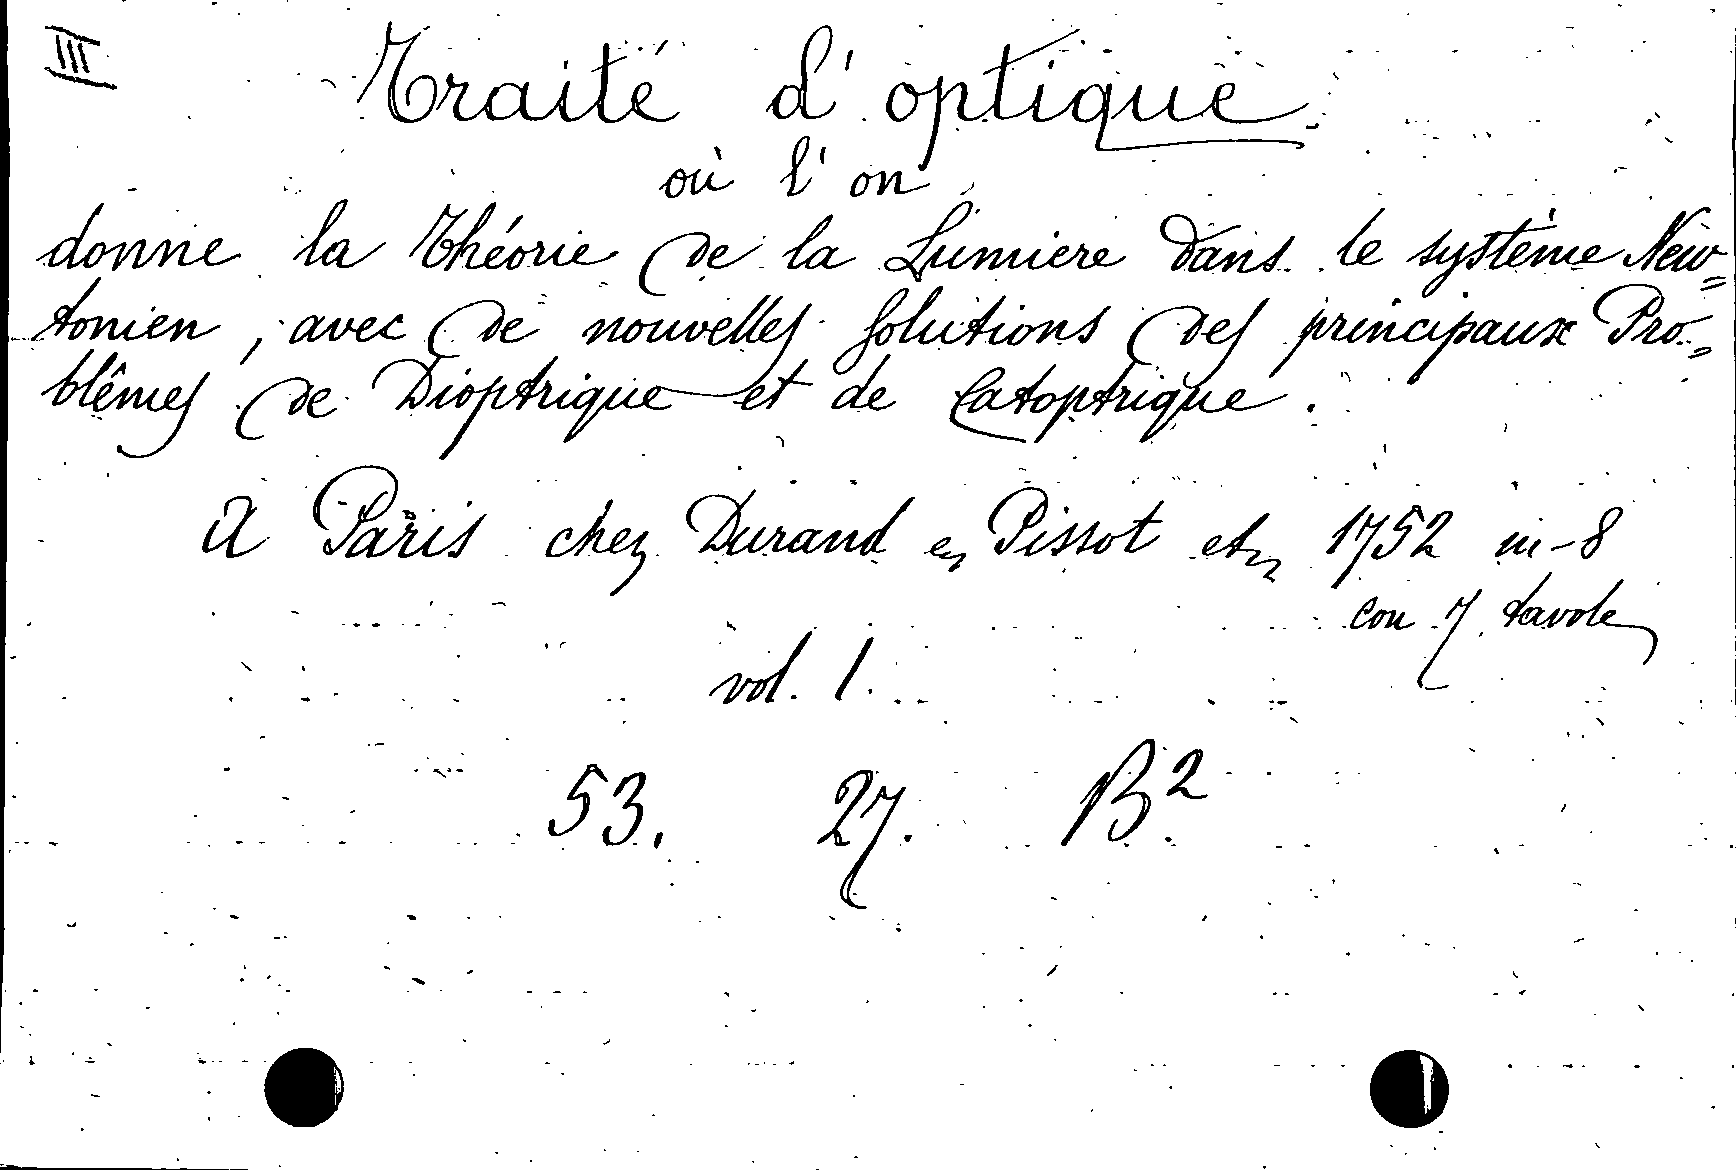 III
Traité d'optique
où l'on
donne la théorie de la Lumiere dans le système New=
tonien, avec de nouvelles solutions des principaux Pro=
blêmes de Dioptrique et de Catoptrique.
A Paris chez Durand e Pissot etc 1752 in-8
con 7 tavole
vol. 1.
53. 27. B.2